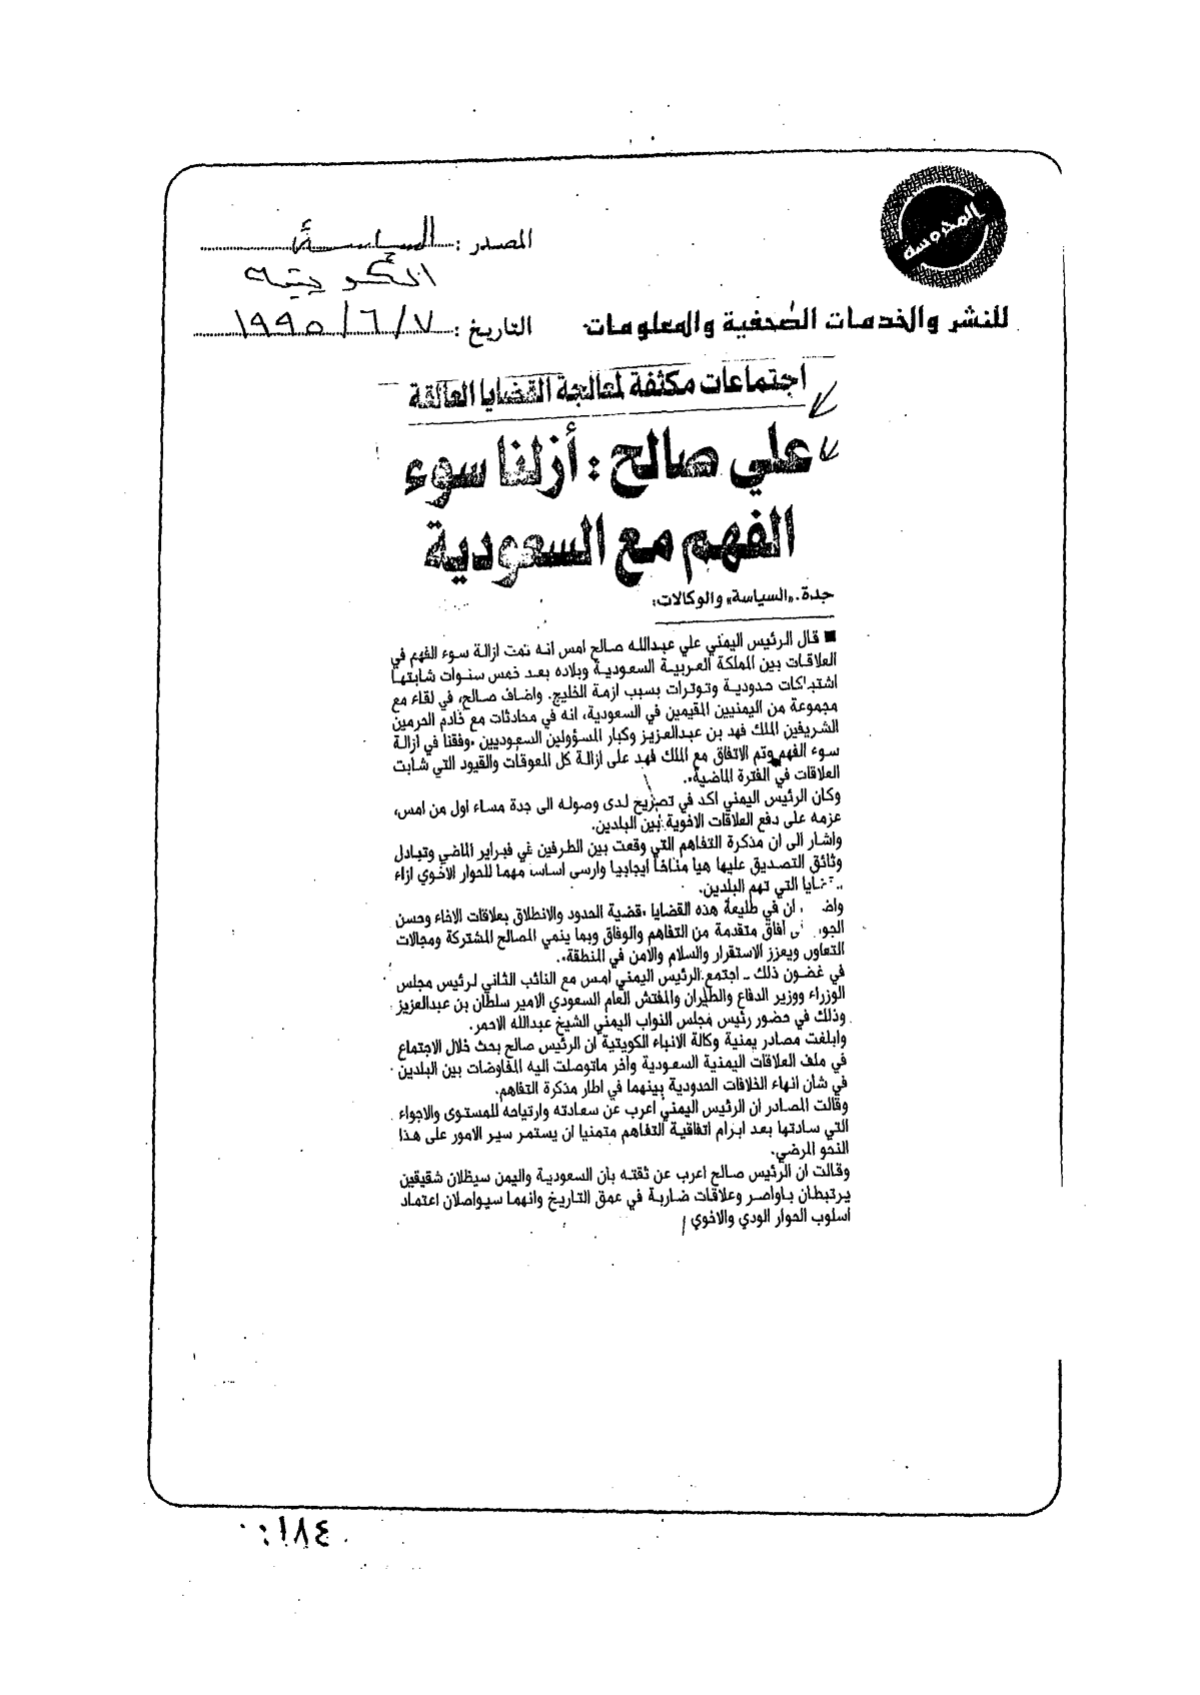 المحروسة
المصدر : السياسة
الكويتية
للنشر والخدمات الصحفية والمعلومات
التاريخ : ٧ / ٦ / ١٩٩٥
اجتماعات مكثفة لمعالجة القضايا العالقة
علي صالح : أزلنا سوء
الفهم مع السعودية
جدة. «السياسة» والوكالات:
■ قال الرئيس اليمني علي عبدالله صالح امس انه تمت ازالة سوء الفهم في
العلاقات بين المملكة العربية السعودية وبلاده بعد خمس سنوات شابتها
اشتباكات حدودية وتوترات بسبب ازمة الخليج. واضاف صالح، في لقاء مع
مجموعة من اليمنيين المقيمين في السعودية، انه في محادثات مع خادم الحرمين
الشريفين الملك فهد بن عبدالعزيز وكبار المسؤولين السعوديين «وفقنا في ازالة
سوء الفهم وتم الاتفاق مع الملك فهد على ازالة كل المعوقات والقيود التي شابت
العلاقات في الفترة الماضية».
وكان الرئيس اليمني اكد في تصريح لدى وصوله الى جدة مساء اول من امس،
عزمه على دفع العلاقات الاخوية بين البلدين.
واشار الى ان مذكرة التفاهم التي وقعت بين الطرفين في فبراير الماضي وتبادل
وثائق التصديق عليها هيا مناخا ايجابيا وارسى اساسا مهما للحوار الاخوي ازاء
التي تهم البلدين.
ان في طليعة هذه القضايا «قضية الحدود والانطلاق بعلاقات الاخاء وحسن
افاق متقدمة من التفاهم والوفاق وبما ينمي المصالح المشتركة ومجالات
التعاون ويعزز الاستقرار والسلام والامن في المنطقة».
في غضون ذلك ـ اجتمع الرئيس اليمني امس مع النائب الثاني لرئيس مجلس
الوزراء ووزير الدفاع والطيران والمفتش العام السعودي الامير سلطان بن عبدالعزيز
وذلك في حضور رئيس مجلس النواب اليمني الشيخ عبدالله الاحمر.
وابلغت مصادر يمنية وكالة الانباء الكويتية ان الرئيس صالح بحث خلال الاجتماع
في ملف العلاقات اليمنية السعودية واخر ماتوصلت اليه المفاوضات بين البلدين
في شان انهاء الخلافات الحدودية بينهما في اطار مذكرة التفاهم.
وقالت المصادر ان الرئيس اليمني اعرب عن سعادته وارتياحه للمستوى والاجواء
التي سادتها بعد ابرام اتفاقية التفاهم متمنيا ان يستمر سير الامور على هذا
النحو المرضي.
وقالت ان الرئيس صالح اعرب عن ثقته بان السعودية واليمن سيظلان شقيقين
يرتبطان باواصر وعلاقات ضاربة في عمق التاريخ وانهما سيواصلان اعتماد
اسلوب الحوار الودي والاخوي
٠٠١٨٤